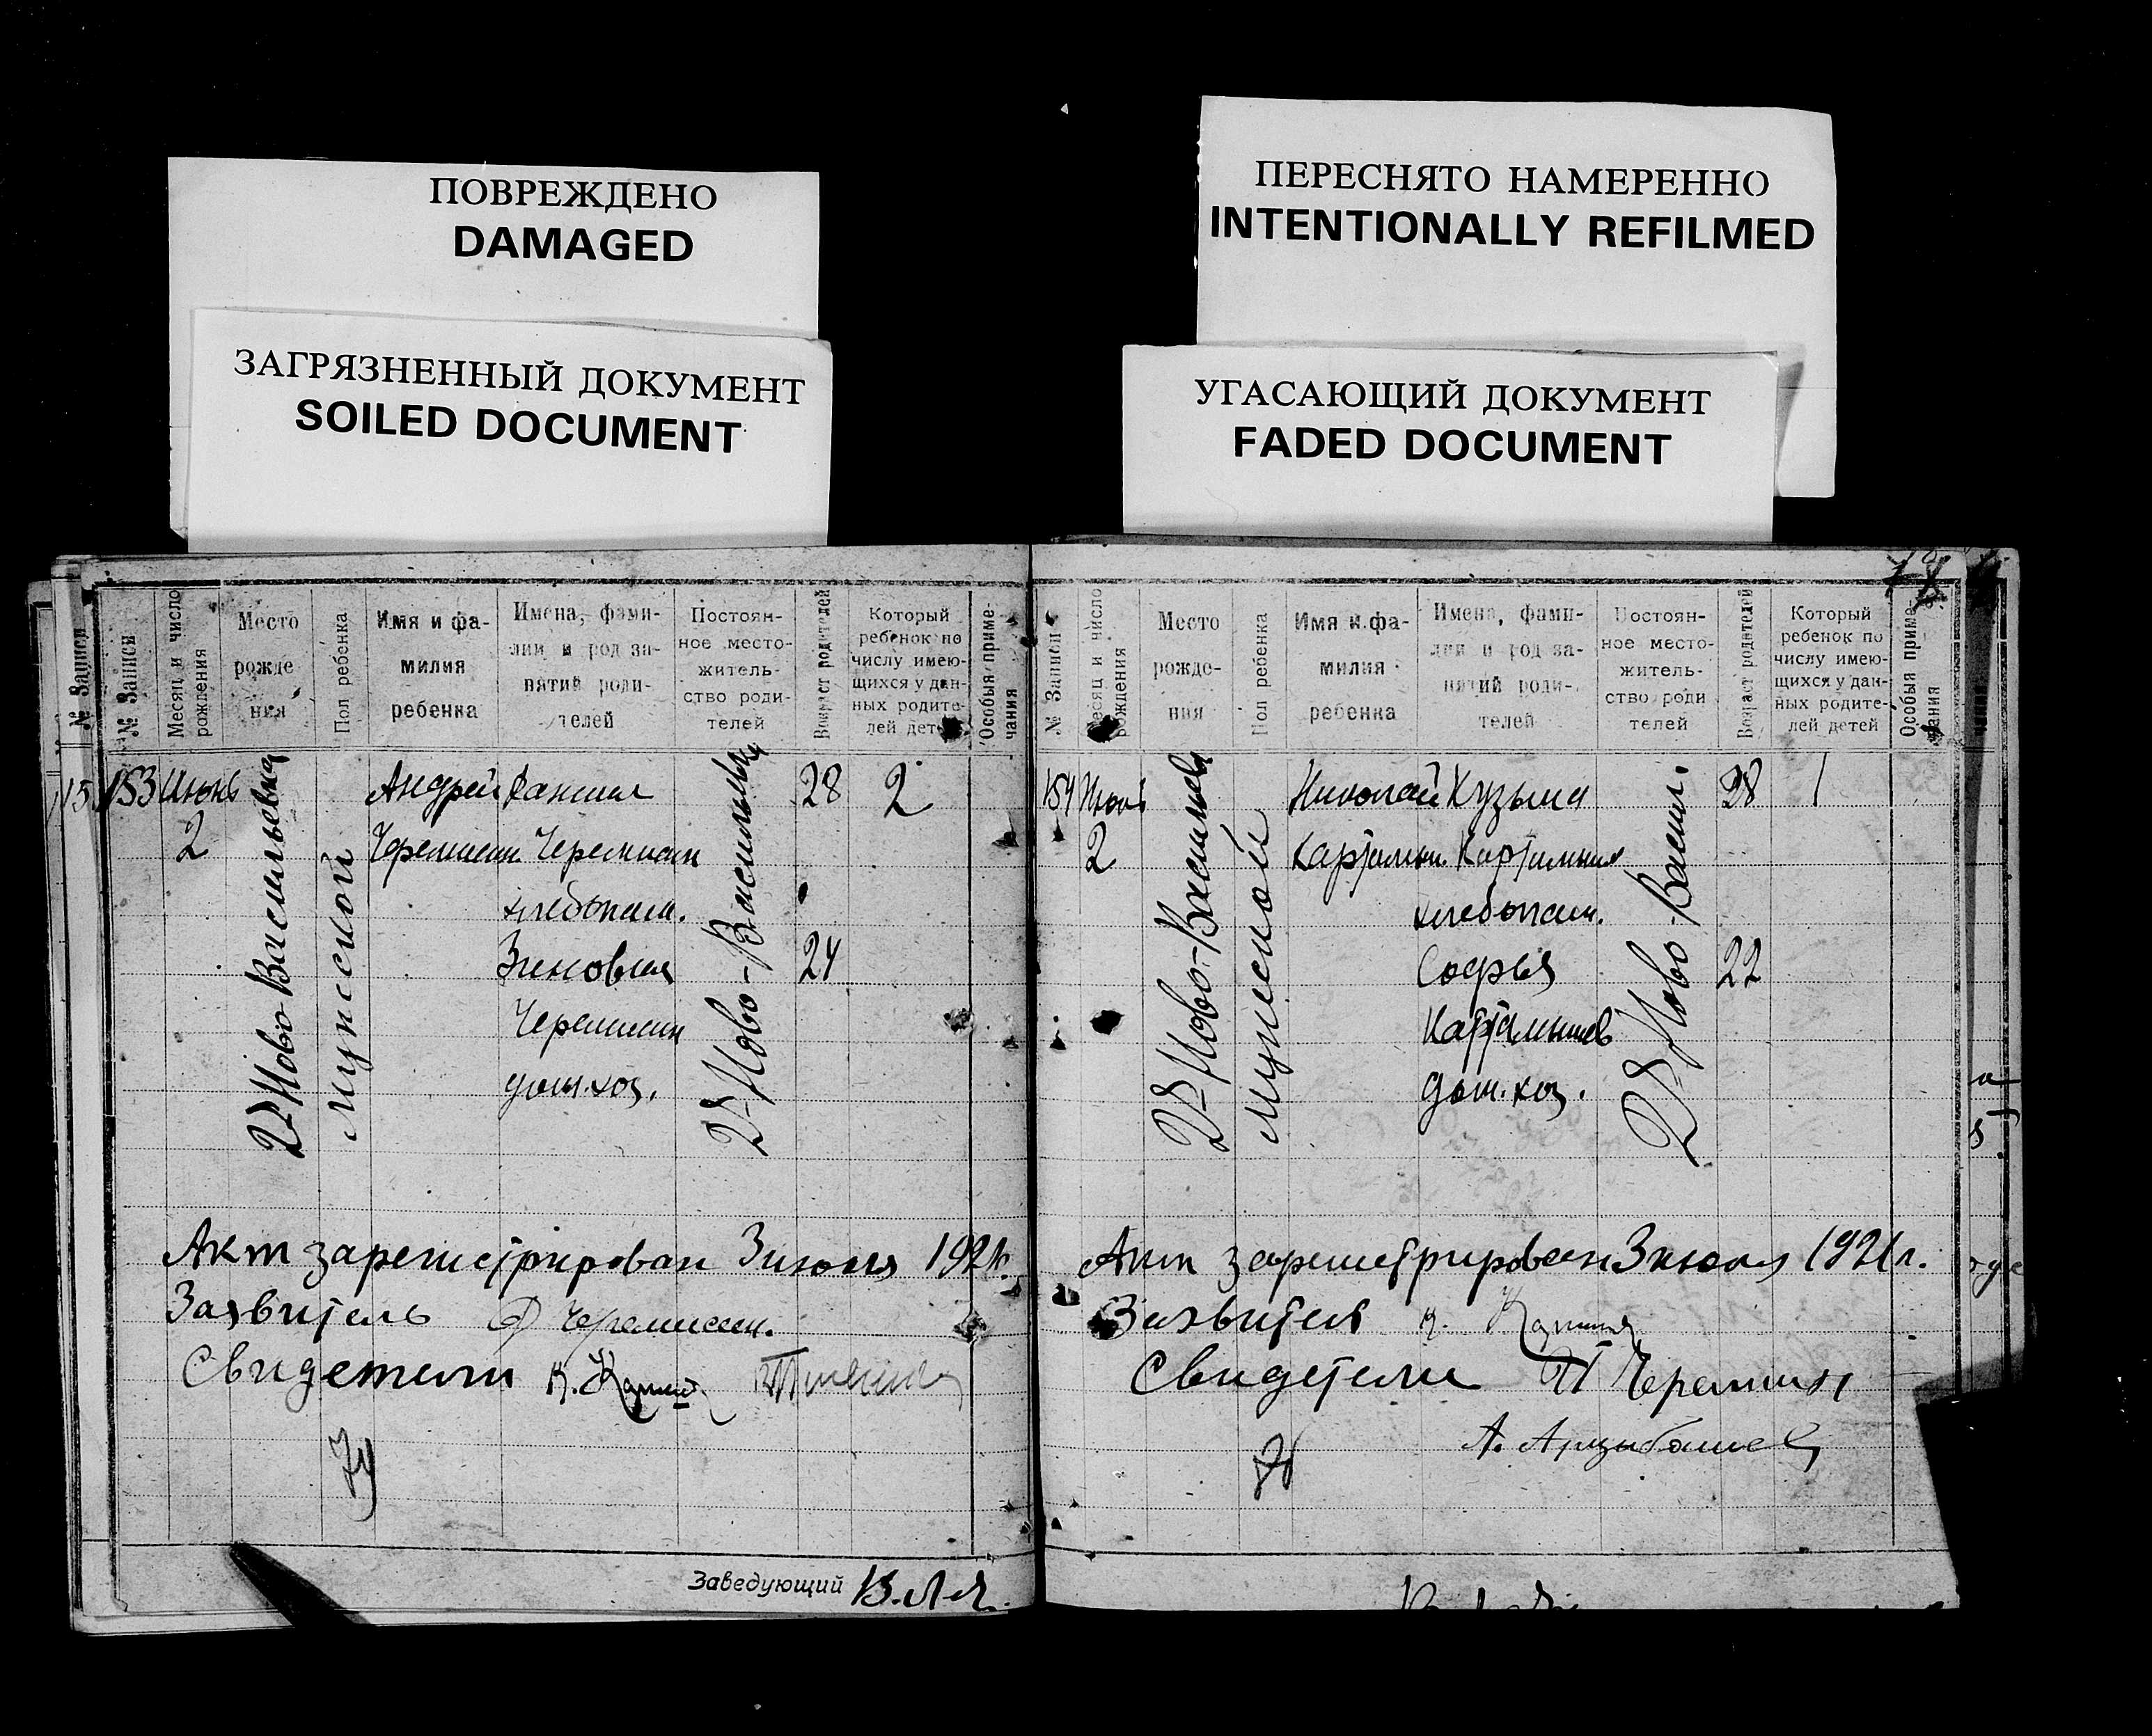 ПОВРЕЖДЕНО
DAMAGED
ЗАГРЯЗНЕННЫЙ ДОКУМЕНТ
SOILED DOCUMENT
ПЕРЕСНЯТО НАМЕРЕННО
INTENTIONALLY REFILMED
УГАСАЮЩИЙ ДОКУМЕНТ
FADED DOCUMENT
№ Записи
№ Записи
Месяц и число
рождения
Место
рожде
ния
Пол ребенка
Имя и фа-
милия
ребенка
Имена, фами-
лии и род за-
нятий роди-
телей
Постоян-
ное место-
житель-
ство роди-
телей
Возраст родителей
Который
ребенок по
числу имею-
щихся у дан-
ных родите-
лей детей
Особыя приме-
чания
153
Июнь
2
2е Ново-Васильевка
Мужской
Андрей
Черемисин
Черемисин
хлебопаш.
Зиновия
Черемисин
дом.хоз.
2е Ново-Васильевка
28
24
2
Акт зарегистрирован 3 июля 1921г.
Заявитель Черемисин.
Свидетели К.
74
Заведующий
№ Записи
Месяц и число
рождения
Место
рожде-
ния
Пол ребенка
Имя и фа-
милия
ребенка
Имена, фами-
лии и род за-
нятий роди-
телей
Постоян-
ное место-
житель-
ство роди
телей
Возраст родителей
Который
ребенок по
числу имею-
щихся у дан-
ных родите-
лей детей
Особыя приме-
чания
154
2
2е Ново-Васильев
Мужской
Николай
Кузьма
хлебопаш.
Софья
дом. хоз.
2е Ново-Васил.
28
22
1
Акт зарегистрирован 3 июля 1921г.
Заявитель К.
Свидетели Черемисин
А. Арцыбашев